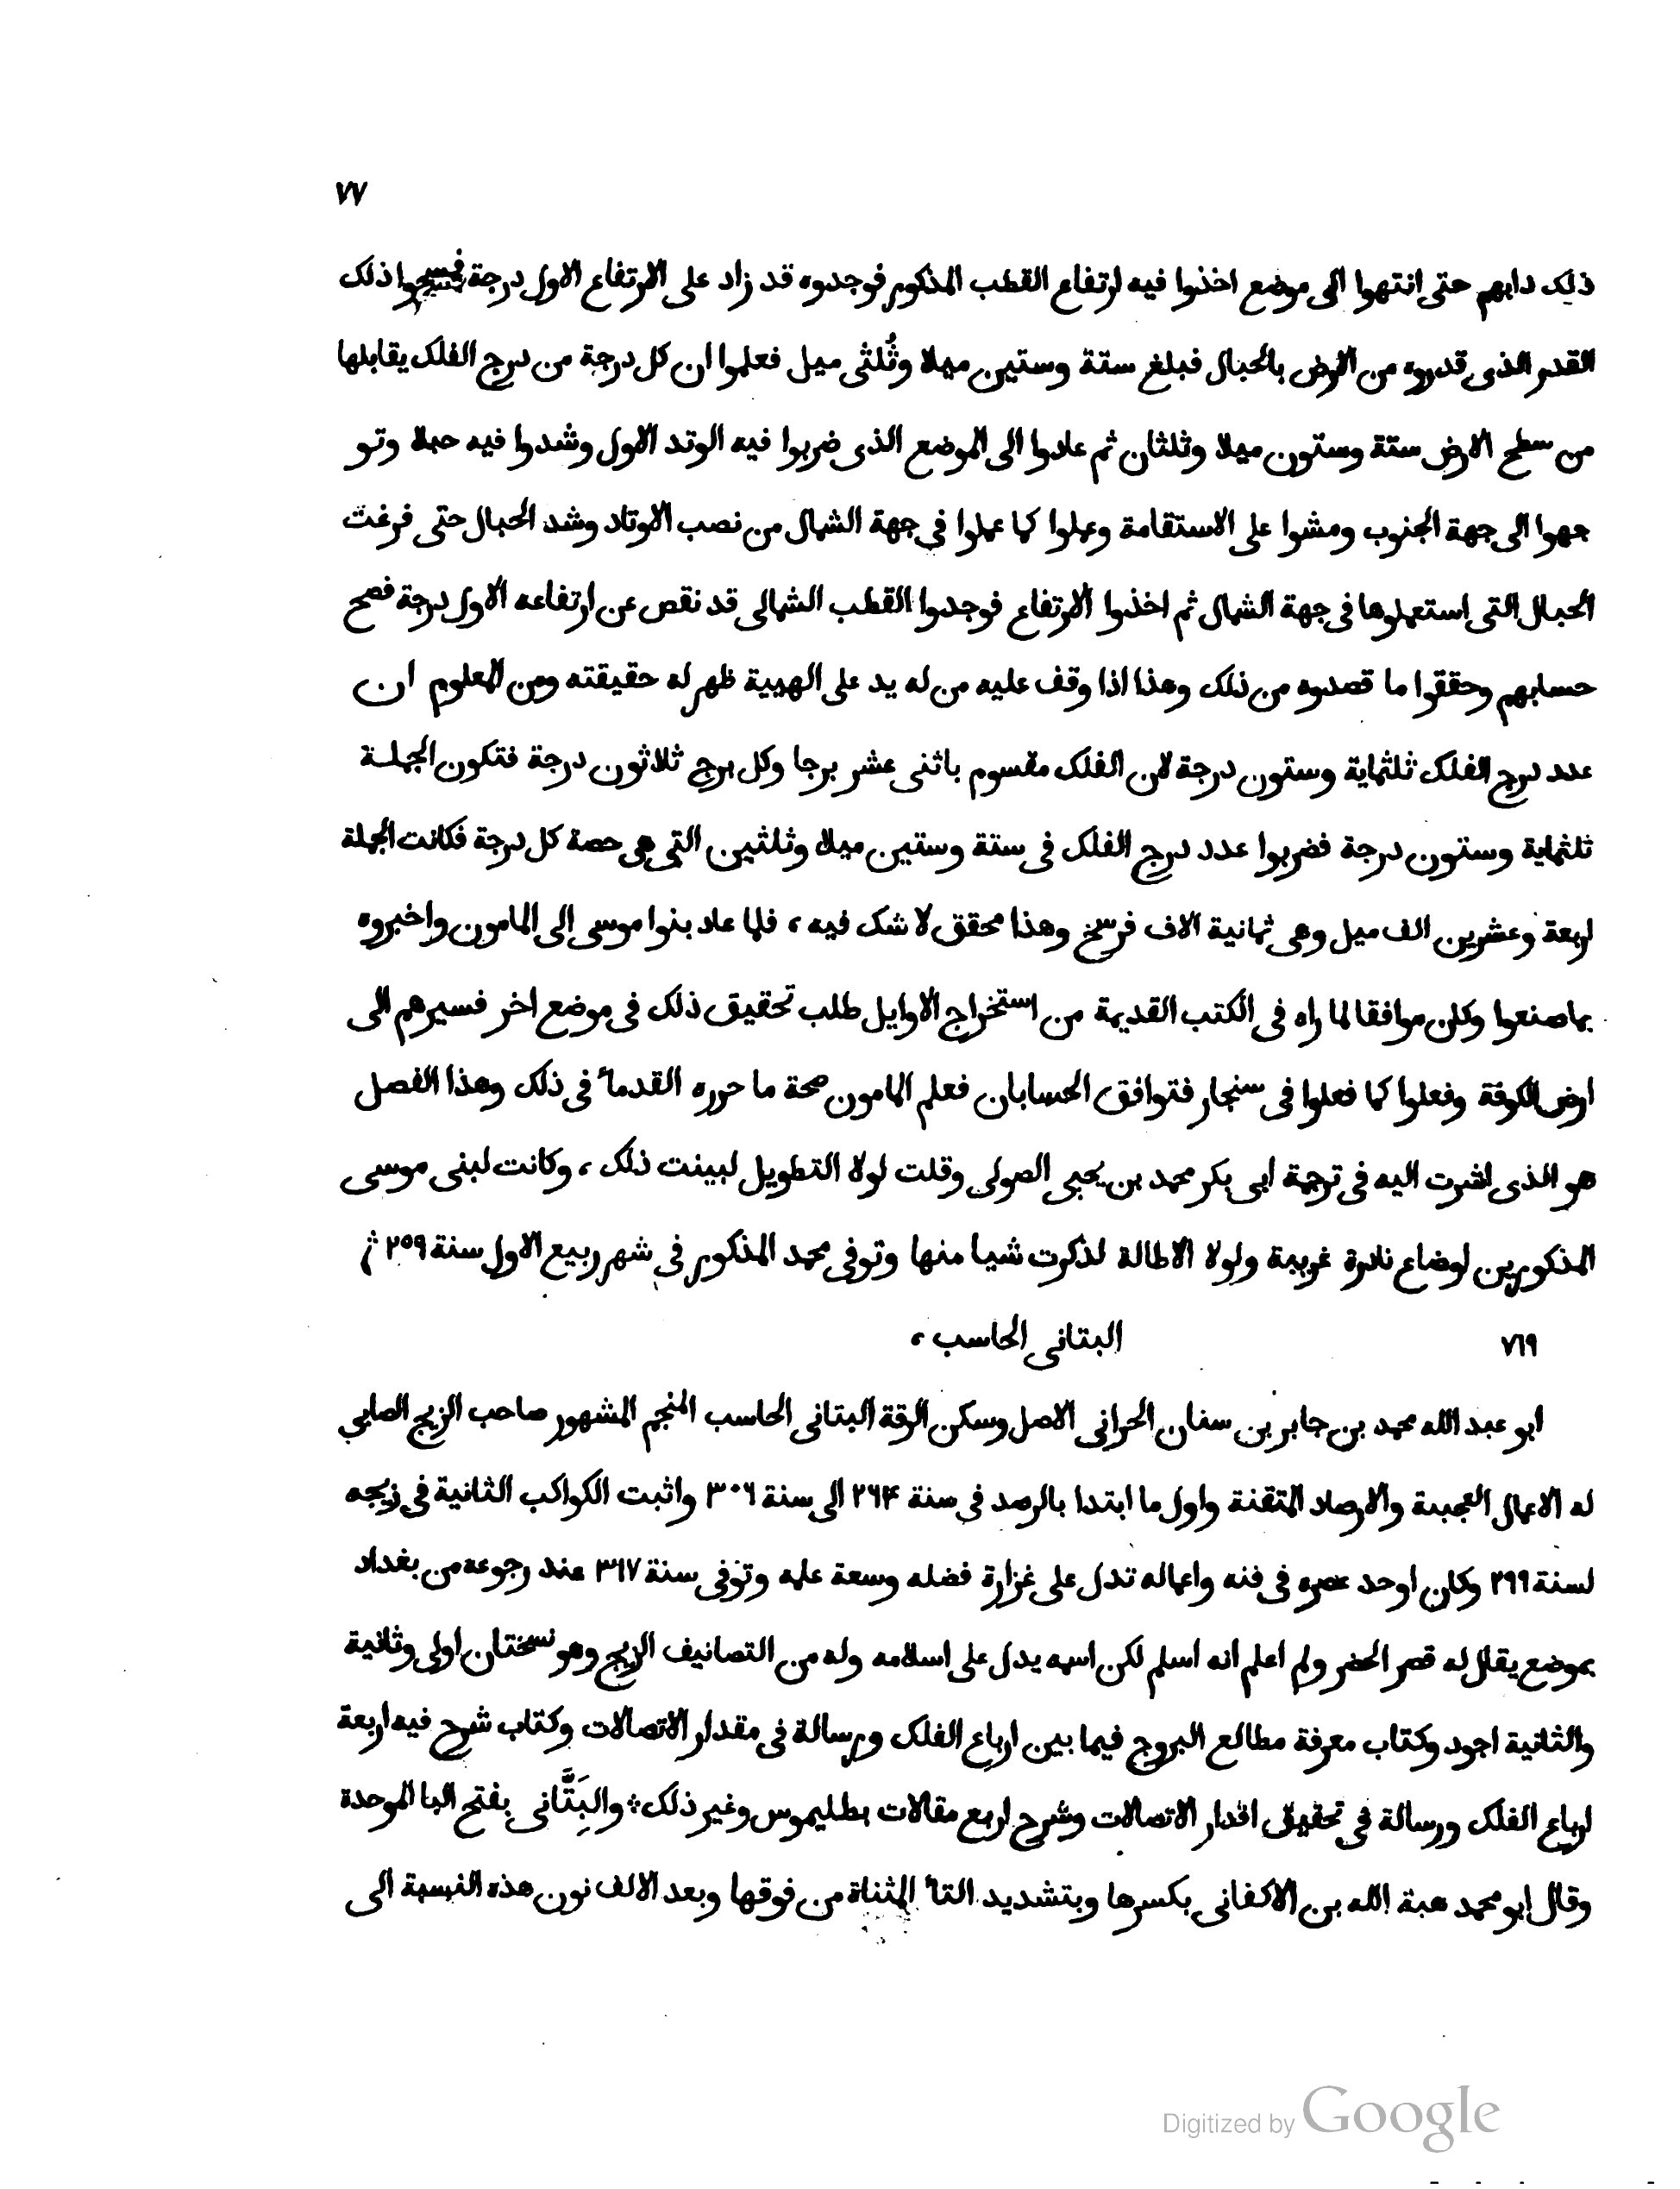 ٧٧
ذلك دابهم حتى انتهوا الى موضع اخذوا فيه ارتفاع القطب المذكور فوجدوه قد زاد على الارتفاع الاول درجة فمسحوا ذلك
القدر الذى قدروه من الارض بالحبال فبلغ ستة وستين ميلا وثُلثى ميل فعلموا ان كل درجة من درج الفلك يقابلها
من سطح الارض ستة وستون ميلا وثلثان ثم عادوا الى الموضع الذى ضربوا فيه الوتد الاول وشدوا فيه حبلا وتو
جهوا الى جهة الجنوب ومشوا على الاستقامة وعملوا كما عملوا فى جهة الشمال من نصب الاوتاد وشد الحبال حتى فرغت
الحبال التى استعملوها فى جهة الشمال ثم اخذوا الارتفاع فوجدوا القطب الشمالى قد نقص عن ارتفاعه الاول درجة فصح
حسابهم وحققوا ما قصدوه من ذلك وهذا اذا وقف عليه من له يد على الهيية ظهر له حقيقته ومن المعلوم ان
عدد درج الفلك ثلثماية وستون درجة لان الفلك مقسوم باثنى عشر برجا وكل برج ثلاثون درجة فتكون الجملة
ثلثماية وستون درجة فضربوا عدد درج الفلك فى ستة وستين ميلا وثلثين التى هى حصة كل درجة فكانت الجملة
اربعة وعشرين الف ميل وهى ثمانية الاف فرسخ وهذا محقق لا شك فيه، فلما عاد بنوا موسى الى المامون واخبروه
بما صنعوا وكان موافقا لما راه فى الكتب القديمة من استخراج الاوايل طلب تحقيق ذلك فى موضع اخر فسيرهم الى
ارض الكوفة وفعلوا كما فعلوا فى سنجار فتوافق الحسابان فعلم المامون صحة ما حرره القدمآ فى ذلك وهذا الفصل
هو الذى اشرت اليه فى ترجمة ابى بكر محمد بن يحيى الصولى وقلت لولا التطويل لبينت ذلك، وكانت لبنى موسى
المذكورين اوضاع نادرة غريبة ولولا الاطالة لذكرت شيا منها وتوفى محمد المذكور فى شهر ربيع الاول سنة ٢٥٩
٧٦٩ البتانى الحاسب،
ابو عبد الله محمد بن جابر بن سنان الحرانى الاصل وسكن الرقة البتانى الحاسب المنجم المشهور صاحب الزيج الصابى
له الاعمال العجيبة والارصاد المتقنة واول ما ابتدا بالرصد فى سنة ٢٦۴ الى سنة ٣٠٦ واثبت الكواكب الثانية فى زيجه
لسنة ٢٩٩ وكان اوحد عصره فى فنه واعماله تدل على غزارة فضله وسعة علمه وتوفى سنة ٣١٧ عند رجوعه من بغداد
بموضع يقال له قصر الحضر ولم اعلم انه اسلم لكن اسمه يدل على اسلامه وله من التصانيف الزيج وهو نسختان اولى وثانية
والثانية اجود وكتاب معرفة مطالع البروج فيما بين ارباع الفلك ورسالة فى مقدار الاتصالات وكتاب شرح فيه اربعة
ارباع الفلك ورسالة فى تحقيق اقدار الاتصالات وشرح اربع مقالات بطليموس وغير ذلك؛ والبِتَّانى بفتح البا الموحدة
وقال ابو محمد هبة الله بن الاكفانى بكسرها وبتشديد التآ المثناة من فوقها وبعد الالف نون هذه النسبة الى
Digitized by Google